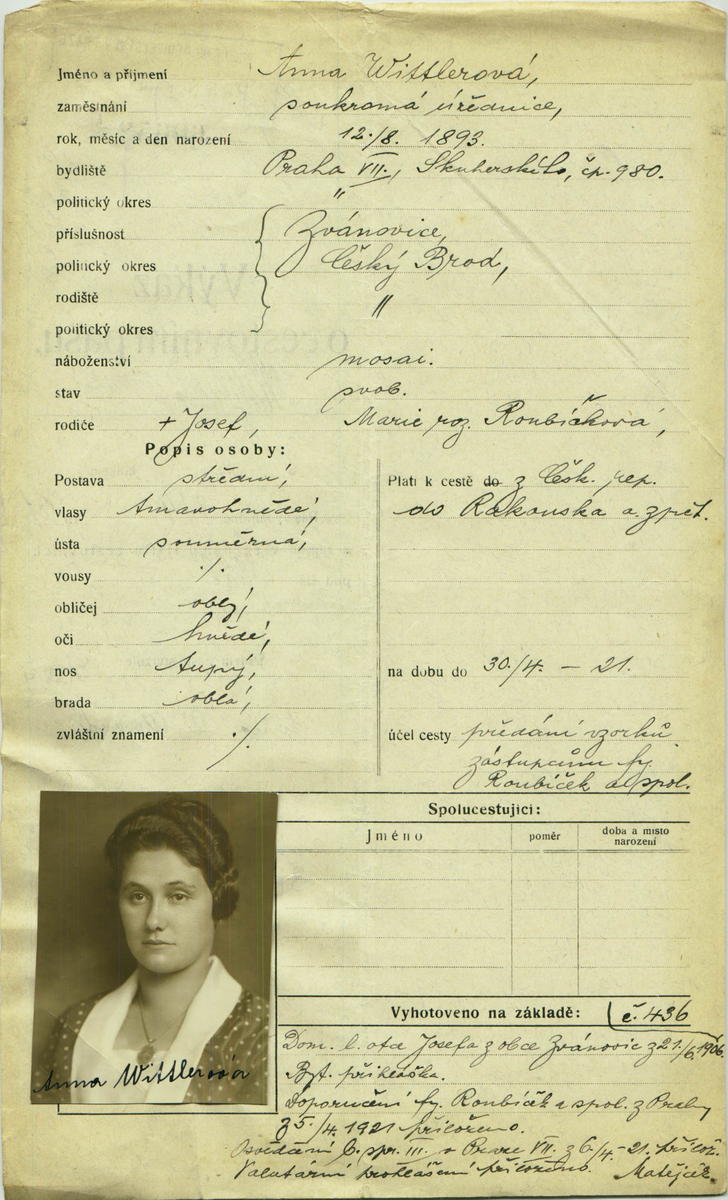 Jméno a přijmení Anna Wittlerová,
zaměstnání soukromá úřednice,
rok, měsíc a den narození 12./8. 1893.
bydliště Praha VII., Skuherského, čp. 980.
politický okres "
příslušnost Zvánovice,
politický okres Český Brod,
rodiště "
politický okres
náboženství mosai.
stav svob.
rodiče + Josef, Marie roz. Roubíčková,
Popis osoby:
Postava střední,
vlasy tmavohnědé,
ústa souměrná,
vousy ./.
obličej oblý,
oči hnědé,
nos tupý,
brada oblá,
zvláštní znamení ./.
Platí k cestě do z Česk. rep.
do Rakouska a zpět.
na dobu do 30./4. – 21.
účel cesty předání vzorků
zástupcům fy.
Roubíček a spol.
Spolucestující:
Jméno poměr doba a misto
narození
Vyhotoveno na základě: č. 436
Dom. l. otce Josefa z obce Zvánovic z 21./6. 1906.
Byt. přihláška.
Doporučení fy. Roubíček a spol. z Prahy
z 5./4. 1921 přiloženo.
Osvědčení b. spr. III. v Praze VII. z 6./4. – 21. přilož.
Valutární prohlášení přiloženo. Matějček.
Anna Wittlerová